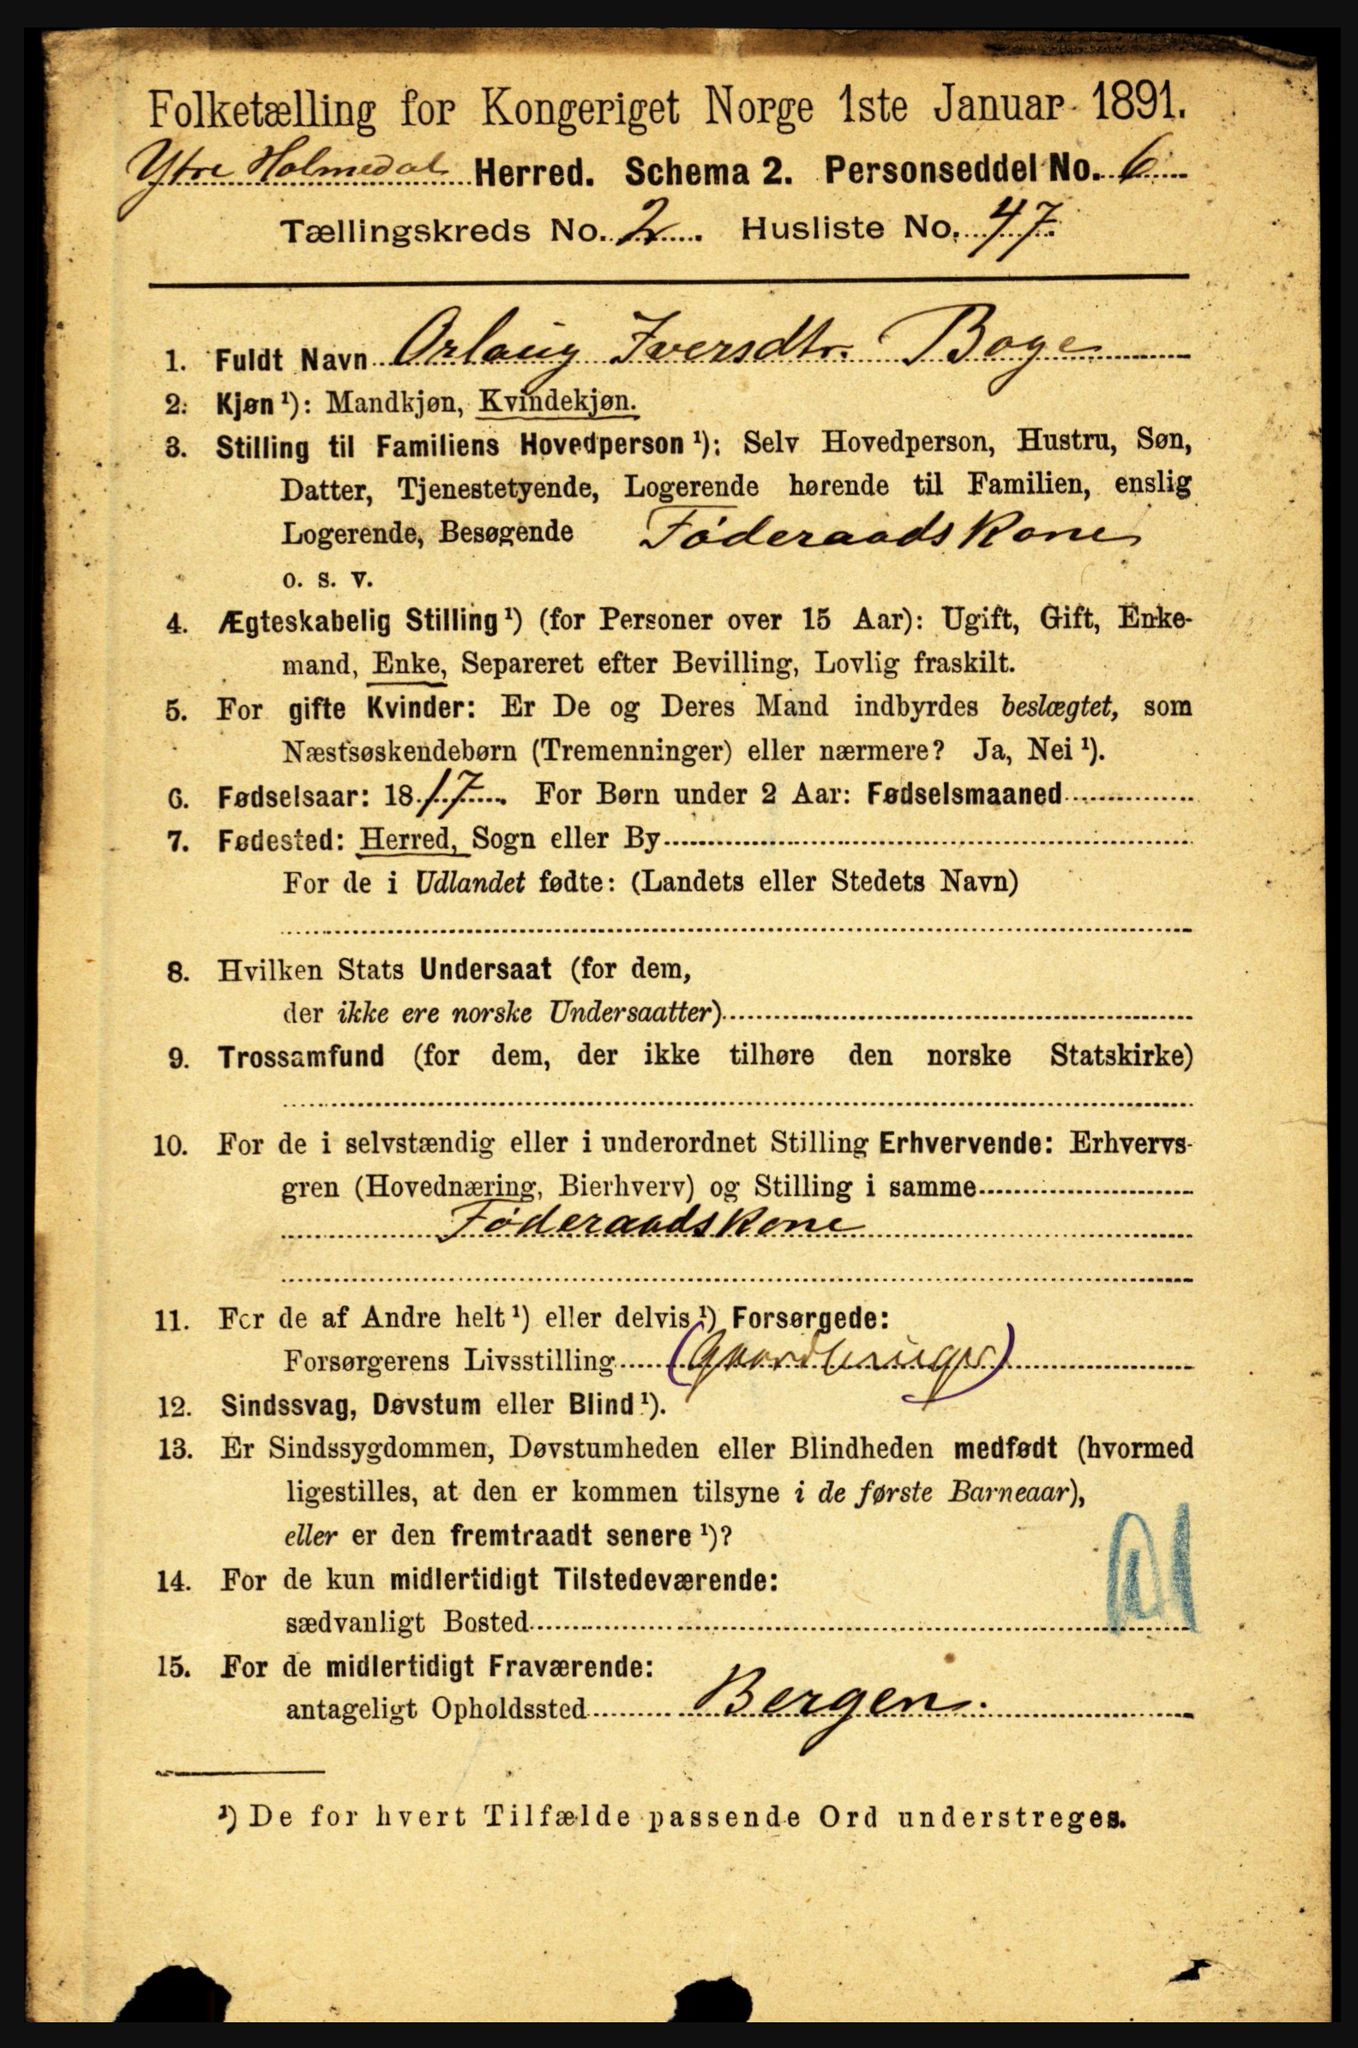 Folketælling for Kongeriget Norge 1ste Januar 1891.
Ytre Holmedal Herred. Schema 2. Personseddel No. 6
Tællingskreds No. 2. Husliste No. 47
1. Fuldt Navn Orlaug Iversdtr. Boge
2. Kjøn¹): Mandkjøn, Kvindekjøn.
3. Stilling til Familiens Hovedperson¹): Selv Hovedperson, Hustru, Søn,
Datter, Tjenestetyende, Logerende hørende til Familien, enslig
Logerende, Besøgende Føderaadskone
o. s. v.
4. Ægteskabelig Stilling¹) (for Personer over 15 Aar): Ugift, Gift, Enke-
mand, Enke, Separeret efter Bevilling, Lovlig fraskilt.
5. For gifte Kvinder: Er De og Deres Mand indbyrdes beslægtet, som
Næstsøskendebørn (Tremenninger) eller nærmere? Ja, Nei¹).
6. Fødselsaar: 1817. For Børn under 2 Aar: Fødselsmaaned
7. Fødested: Herred, Sogn eller By
For de i Udlandet fødte: (Landets eller Stedets Navn)
8. Hvilken Stats Undersaat (for dem,
der ikke ere norske Undersaatter)
9. Trossamfund (for dem, der ikke tilhøre den norske Statskirke)
10. For de i selvstændig eller i underordnet Stilling Erhvervende: Erhvervs-
gren (Hovednæring, Bierhverv) og Stilling i samme
Føderaadskone
11. For de af Andre helt¹) eller delvis¹) Forsørgede:
Forsørgerens Livsstilling (Gaardbruger)
12. Sindssvag, Døvstum eller Blind¹).
13. Er Sindssygdommen, Døvstumheden eller Blindheden medfødt (hvormed
ligestilles, at den er kommen tilsyne i de første Barneaar),
eller er den fremtraadt senere¹)?
14. For de kun midlertidigt Tilstedeværende:
sædvanligt Bosted
15. For de midlertidigt Fraværende:
antageligt Opholdssted Bergen.
¹) De for hvert Tilfælde passende Ord understreges.